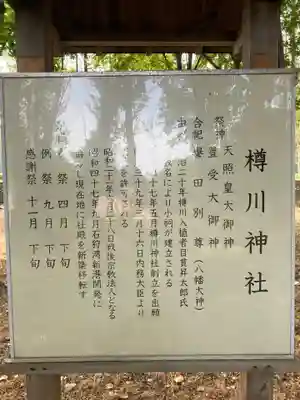 樽川神社
祭神 天照皇大御神
豊受大御神
合祀 誉田別尊(八幡大神)
治二十年樽川入植者日置昇太郎氏
名により小祠が建立される
十七年五月樽川神社創立を出願
三十九年三月十六日内務大臣より
を許可される
昭和二十一年 月二十八日戦後宗教法人となる
昭和四十七年九月石狩湾新港開発に
し現在地に社殿を新築移転す
祭 四月 下旬
例祭 九月 下旬
感謝祭 十一月 下旬